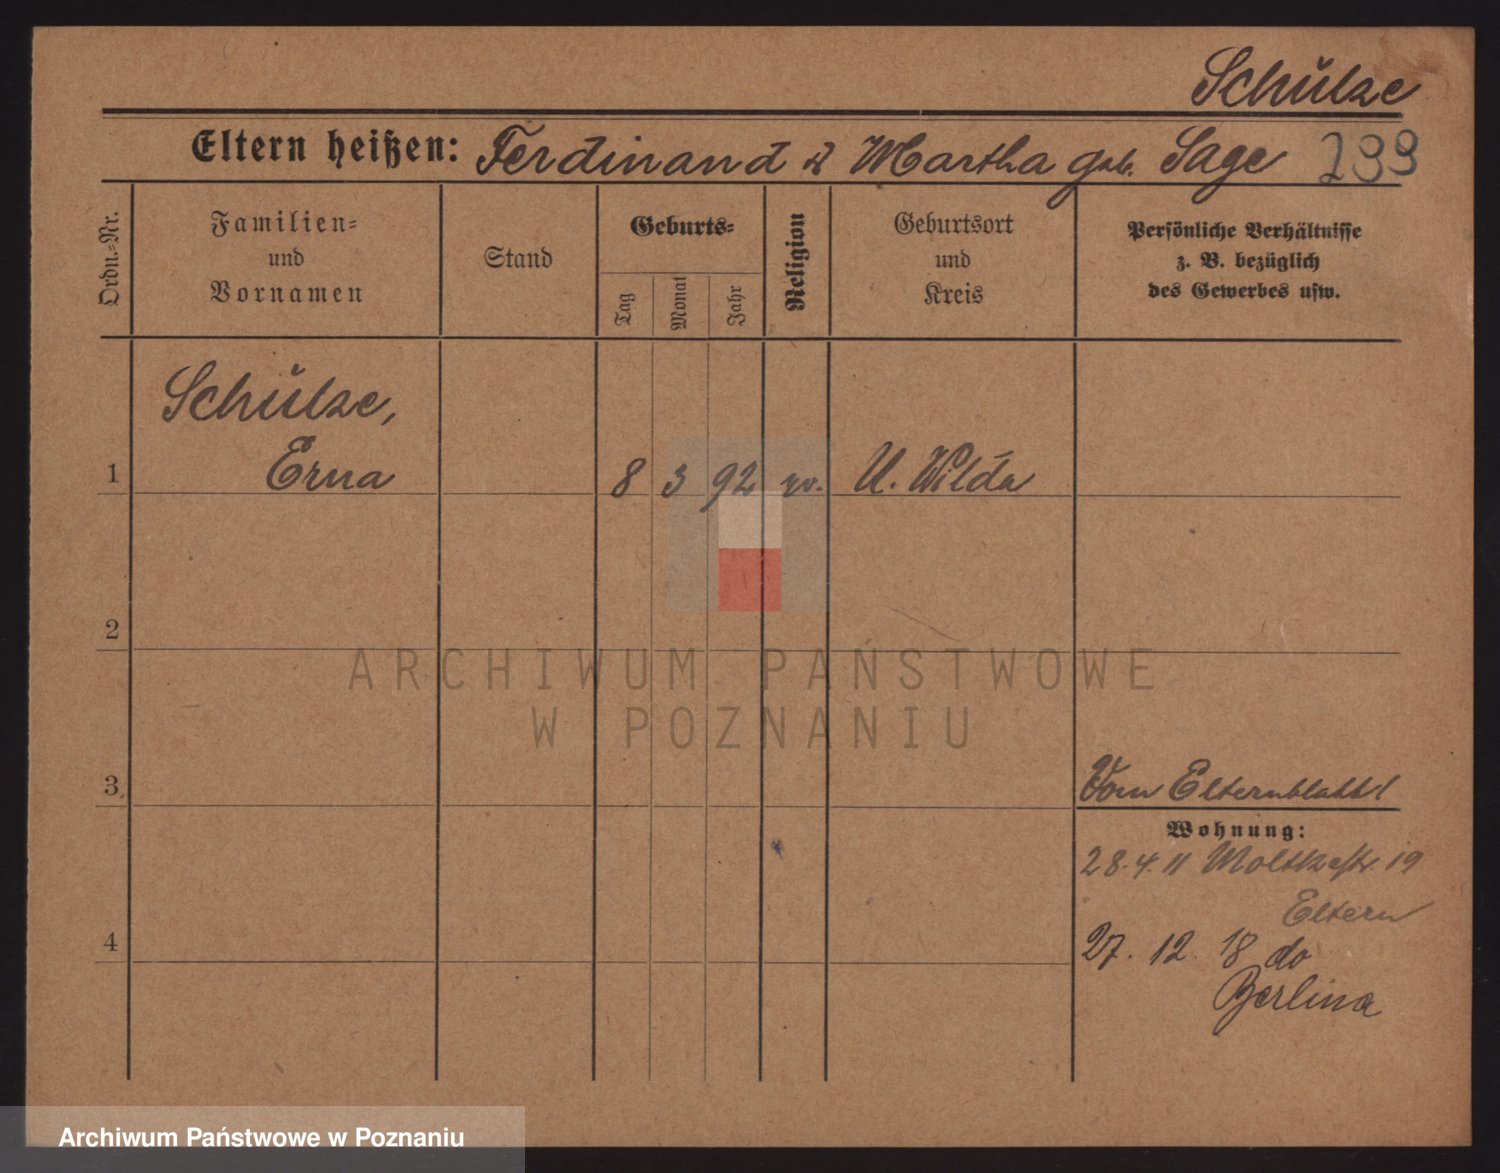 Schulze
Eltern heißen: Ferdinand u Martha geb. Sage 299
Ordn.-Nr.
Familien-
und
Vornamen
Stand
Geburts-
Tag
Monat
Jahr
Religion
Geburtsort
und
Kreis
Persönliche Verhältnisse
z. B. bezüglich
des Gewerbes usw.
Schulze,
1 Erna 8 3 92 ev. U. Wilda
2
3
4
Vom Elternblatt!
Wohnung:
28.4.11 Moltkestr. 19
Eltern
27. 12. 18 do
Berlina
ARCHIWUM PAŃSTWOWE
W POZNANIU
Archiwum Państwowe w Poznaniu